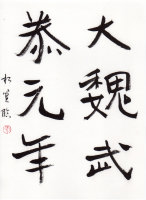 大魏武
泰元年